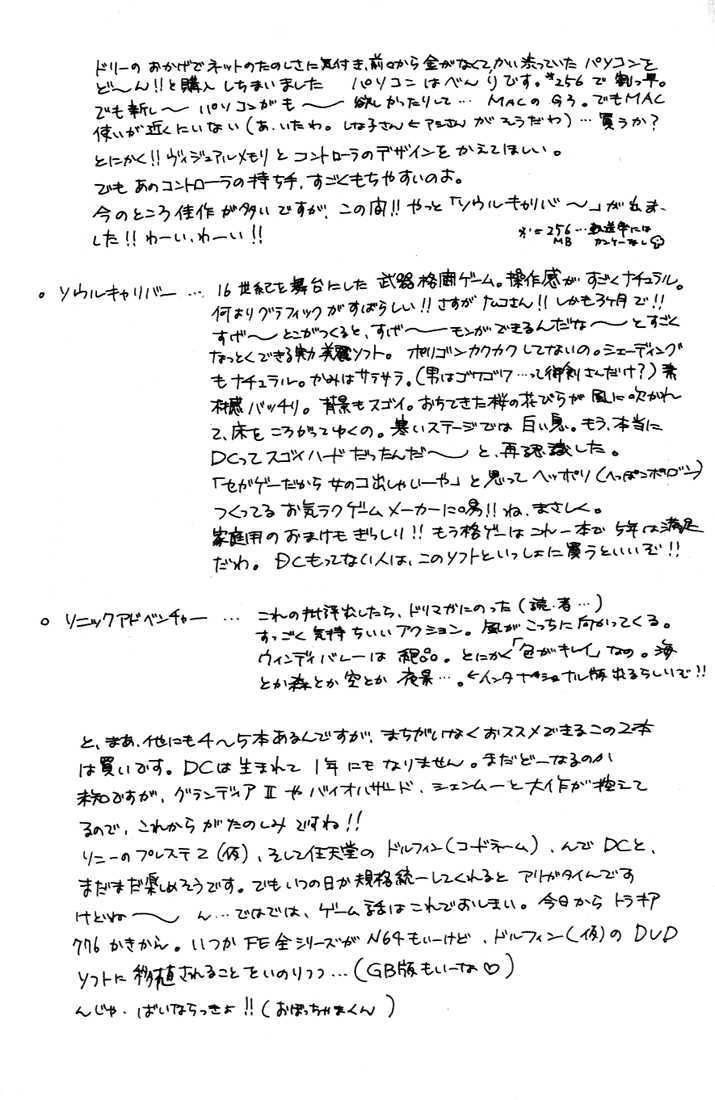 ドリーの おかげでネットのたのしさに気付き、前々から金がなくてかい渋っていた パソコンを
ど〜ん!!と購入しちまいました パソコンはべんりです。※256で割っ早。
でも新し〜 パソコンがも〜 欲しかったりして… MACのG3。でもMAC
使いが近くにいない(あ、いたわ。しな子さん←アミさん がそうだわ)…買うか?
とにかく!! ヴィジュアルメモリとコントローラのデザインを かえてほしい。
でも あのコントローラの持ち手、すごくもちやすいのよ。
今のところ佳作が多いですが、この間!! やっと「ソウルキャリバ〜」が出ま
した!! わーい、わーい!!
※=256…転送率には
MB カンケーなし
○ ソウルキャリバー … 16世紀を舞台にした 武器格闘ゲーム。操作感が すごくナチュラル。
何よりグラフィックがすばらしい!! さすがナムコさん!! しかも3ヶ月で!!
すげ〜 とこがつくると、すげ〜 モンができるんだな〜 とすごく
なっとくできる 美麗ソフト。 ポリゴンカクカクしてないの。シェーディング
もナチュラル。かみはサラサラ。(男はゴワゴワ…って御剣さんだけ?) 素
材感バッチリ。背景もスゴイ。おちてきた桜の花びらが 風に吹かれ
て、床を ころがってゆくの。寒いステージでは 白い息。もう、本当に
DCってスゴイハードだったんだ〜 と、再認識した。
「セガゲーだから 女のコ出しゃいーや」と思って ヘッポリ(へっぽこポリゴン)
つくってる お気ラクゲームメーカーに喝!! ね、まさしく。
家庭用のおまけもぎっしり!! もう格ゲーはこれ一本で5年は満足
だわ。DCもってない人は、このソフトといっしょに買うといいぞ!!
○ ソニックアドベンチャー … これの批評出したら、ドリマガにのった(読・者…)
すっごく気持ちいいアクション。風がこっちに向かってくる。
ウィンディバレーは 絶品。とにかく「色がキレイ」なの。海
とか森とか空とか 夜景…。←インタナショナル版出るらしいで!!
と、まあ、他にも4〜5本あるんですが、まちがいなくおススメできるこの2本
は買いです。DCは生まれて 1年にもなりません。まだどーなるのか
未知ですが、グランディアⅡやバイオハザード、シェンムーと大作が控えて
るので、これから がたのしみですね!!
ソニーのプレステ2(仮)、そして任天堂の ドルフィン(コードネーム)、んで DCと、
まだまだ楽しめそうです。でもいつの日か規格統一してくれると アリガタイんです
けどね〜 ん… ではでは、ゲーム話はこれでおしまい。今日から トラキア
776 かきから。いつか FE全シリーズが N64もいーけど、ドルフィン(仮)の DVD
ソフトに移植されることをいのりつつ…(GB版もいーな♡)
んじゃ、ばいならっきょ!!(おぼっちゃまくん)